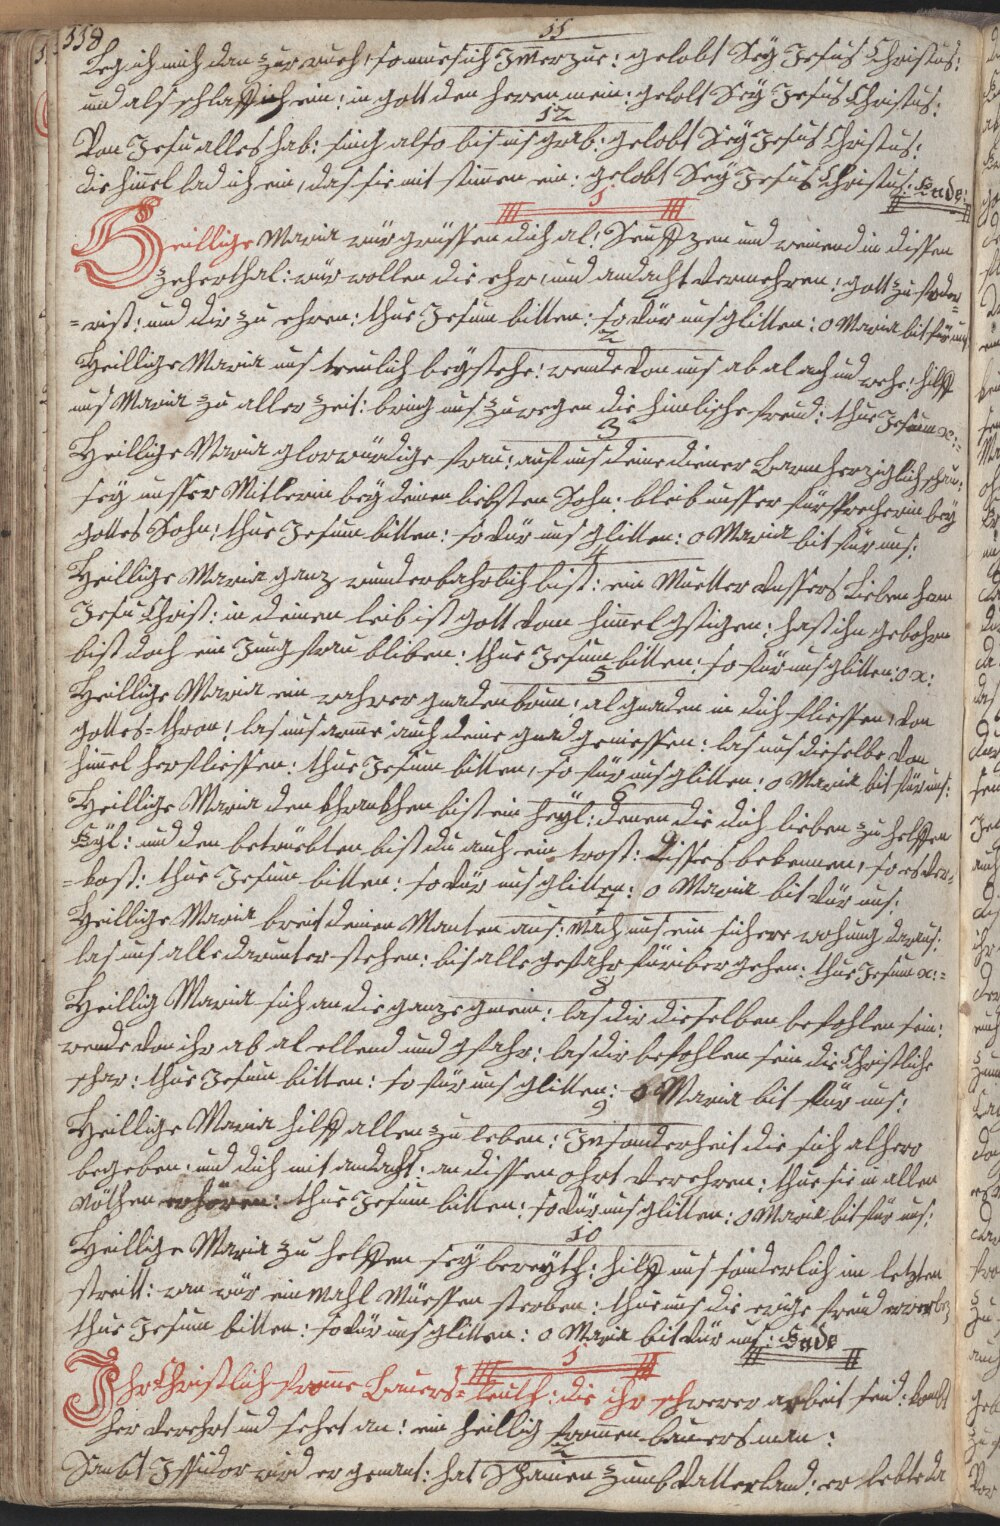 558
11
Leg ich mich dan zur rueh, so mues ich Imer zue: gelobt Seÿ Jesus Christus:
und als schlaff ich ein: in gott den herren mein: gelobt Seÿ Jesus Christus:
12
Von Jesu alles hab: sing also bis ins grab: gelobt Seÿ Jesus Christus:
die himel lad ich ein, das sie mit stimen ein: gelobt Seÿ Jesus Christus: Ende:
1
Heillige Maria wür grüssen dich al: Seuffzen und weinend in dissen
zeherthal: wür wollen die ehr, und andacht vermehren: gott zu forder-
=rist: und dir zu ehren: thue Jesum bitten: so vür uns glitten: o Maria bit für uns
2
Heillige Maria uns treulich beÿstehe: wende von uns ab al ach und wehe: hilff
uns Maria zu aller zeit: bring uns zuwegen die himlische freud: thue Jesum x:
3
Heillige Maria glorwürdige frau: auf uns deine diener Barmherziglich schau:
seÿ unsser Mitlerin beÿ deinen liebsten Sohn: bleib unsser fürsprecherin beÿ
gottes Sohn: thue Jesum bitten: so vür uns glitten: o Maria bit für uns:
4
Heillige Maria ganz wunderbahrlich bist: ein Muetter vnssers Lieben hern
Jesu Christ: in deinen leib ist gott vom himel gstigen: hast ihn gebohrn
bist doch ein Jungfrau bliben: thue Jesum bitten: so für uns glitten: o x:
5
Heillige Maria ein wahrer gnadenbrun: al gnaden in dich fliessen, von
gottes=thron: las uns arme auch deine gnad geniessen: las uns dieselbe von
himel herfliessen: thue Jesum bitten, so für uns glitten: o Maria bit für uns:
6
Heillige Maria den khrankhen bist ein heÿl: denen die dich lieben zu helffen
Eÿl: und den betrüebten bist du auch ein trost: disses bekennen, so es ver=
=kost: thue Jesum bitten: so vür uns glitten: o Maria bit vür uns:
7
Heillige Maria breit deinen Manten aus: Mach uns ein sichere wohung daraus:
las uns alle darunter stehen: bis alle gefahr füribergehen: thue Jesum x:=
8
Heillig Maria sich an die ganze gmein: las dir dieselben befohlen sein:
wende von ihr ab al ellend und gfahr: las dir befohlen sein die Christliche
schar: thue Jesum bitten: so für uns glitten: o Maria bit für uns:
9
Heillige Maria hilff allen zu leben: Insonderheit die sich alhero
begeben: und dich mit andacht: an dissen ohrt verehren: thue sie in allen
Nöthen erhören: thue Jesum bitten: so vür uns glitten: o Maria bit für uns:
10
Heillige Maria zu helffen seÿ bereÿth: hilff uns sonderlich im letzten
streitt: wan wür ein mahl Müessen sterben: thue uns die ewige freud erwerben
thue Jesum bitten: so vür uns glitten: o Maria bit vür uns: Ende
1
Ihr Christlich frome Bauers=leuth: die ihr schwerer arbeit seid: komt
her verehrt und sehet an: ein heillig fromen bauersman:
2
Sankt Issidor wird er genant: hat Spanien zumb vatterland: er lebte da